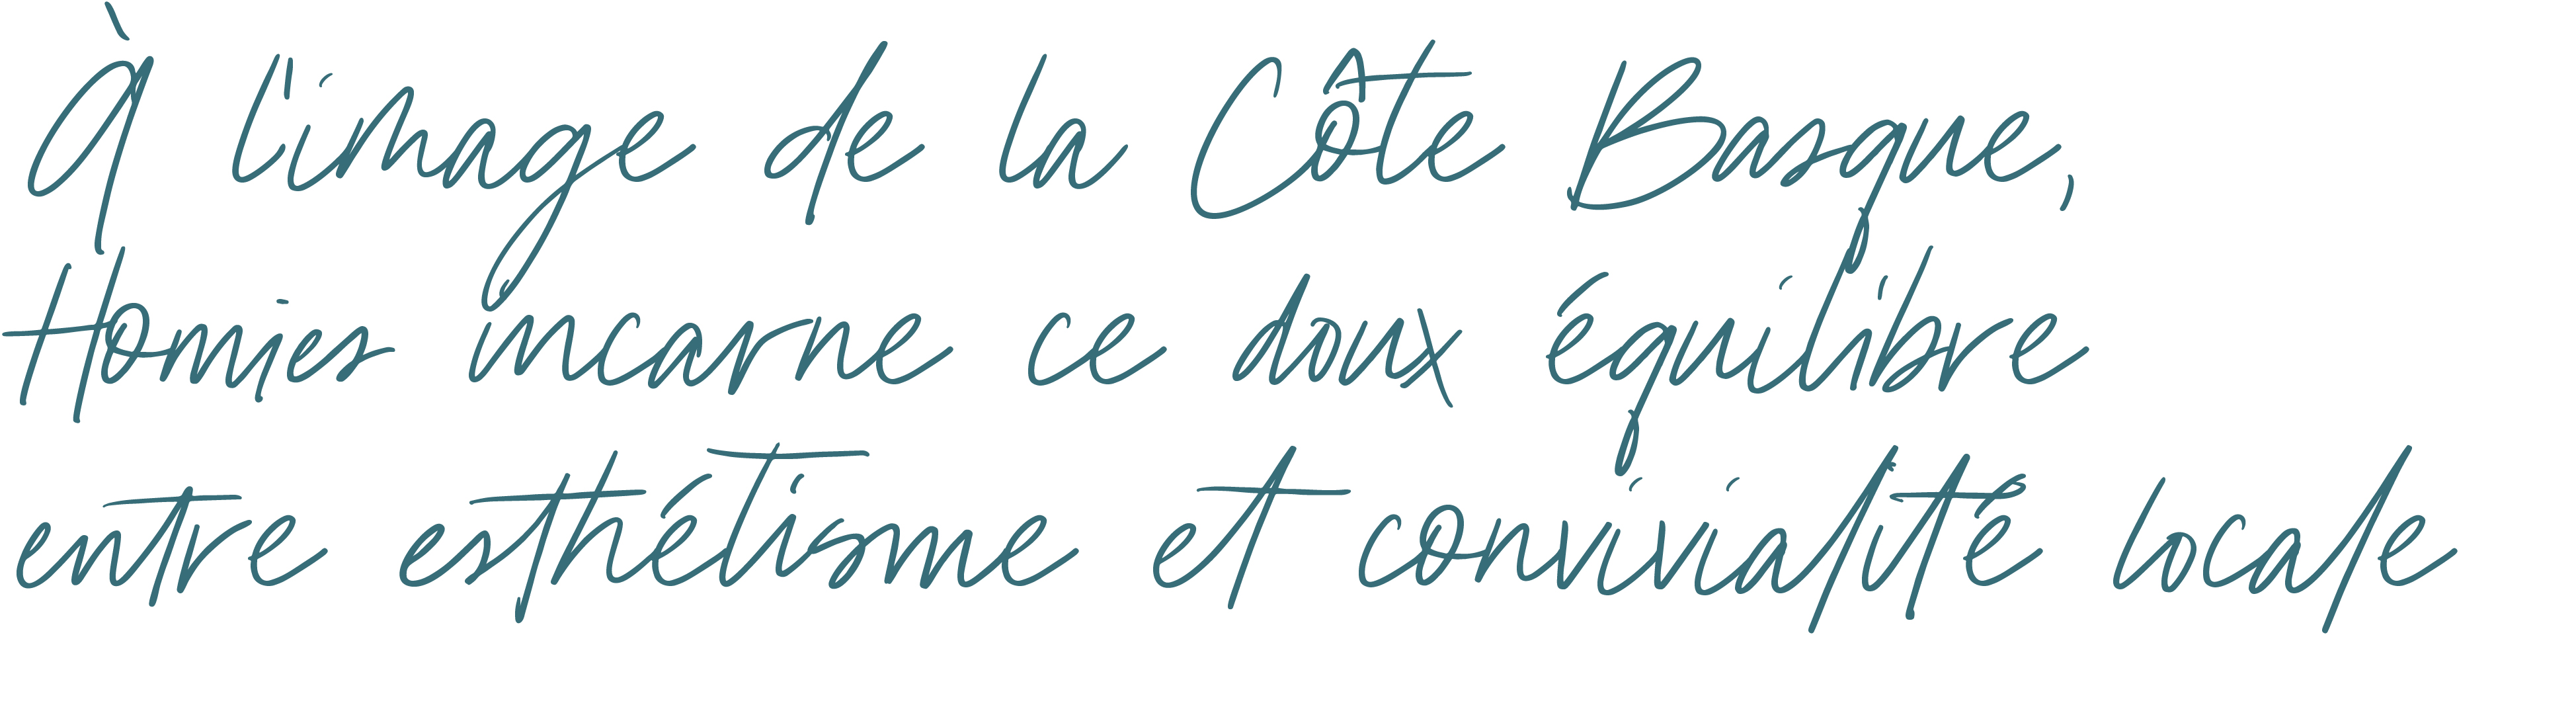 À l'image de la Côte Basque,
Homies incarne ce doux équilibre
entre esthétisme et convivialité locale